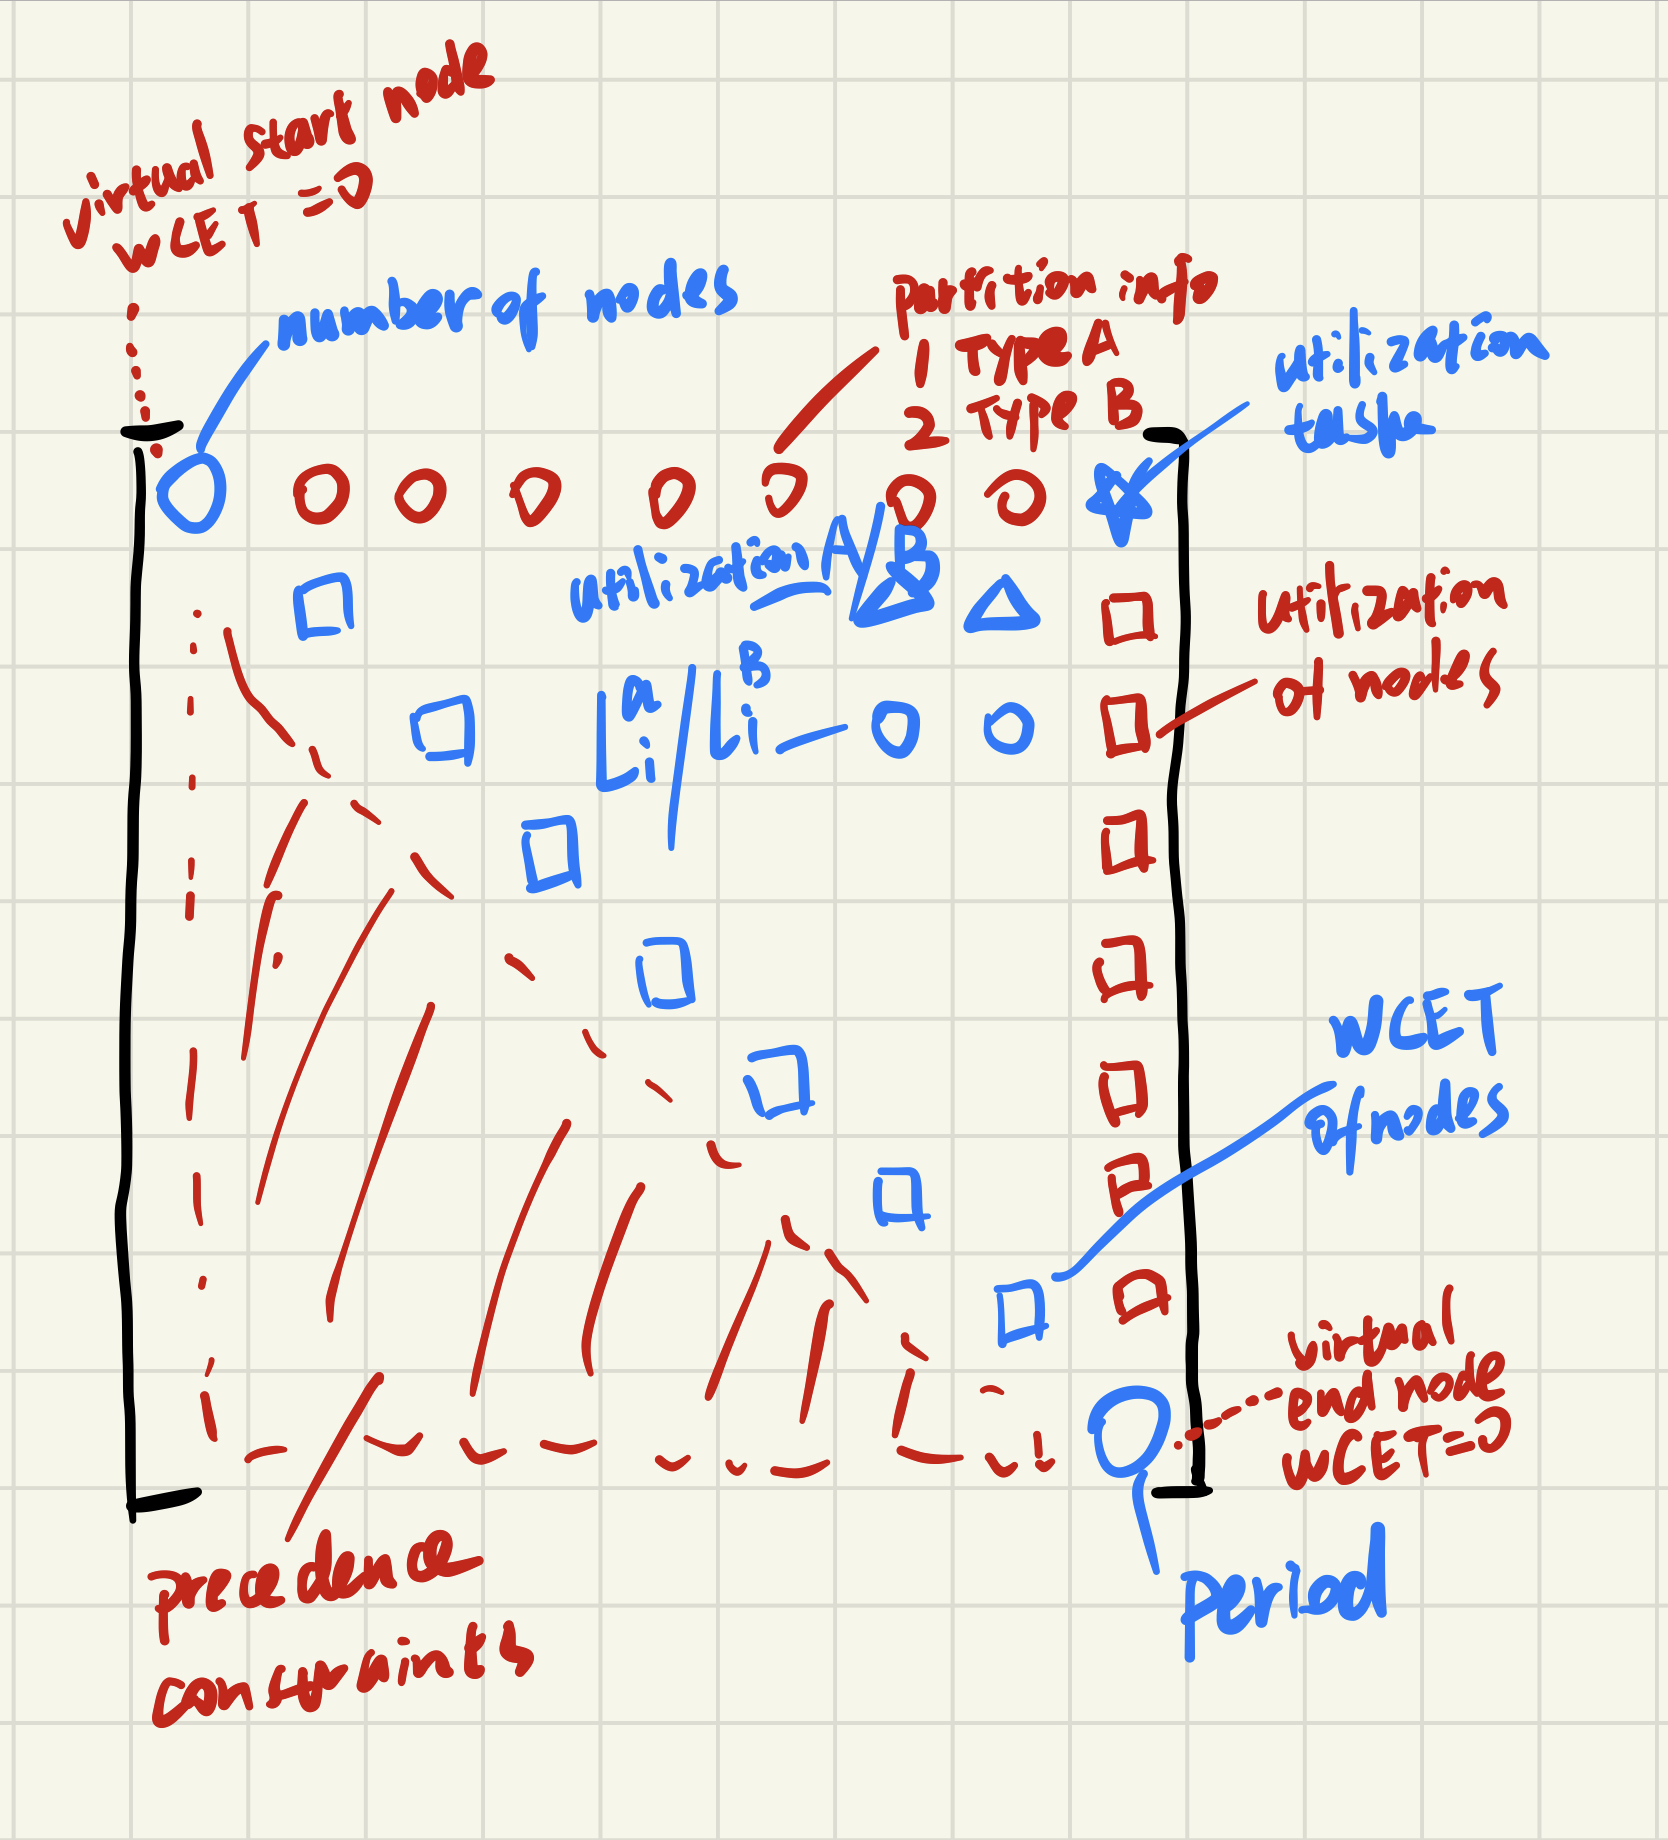 virtual start node
WCET =0
number of nodes
partition info
1 Type A
2 Type B
utilization
utilization A/B
utilization
of nodes
WCET
of nodes
virtual
end node
WCET=0
period
precedence
constraints